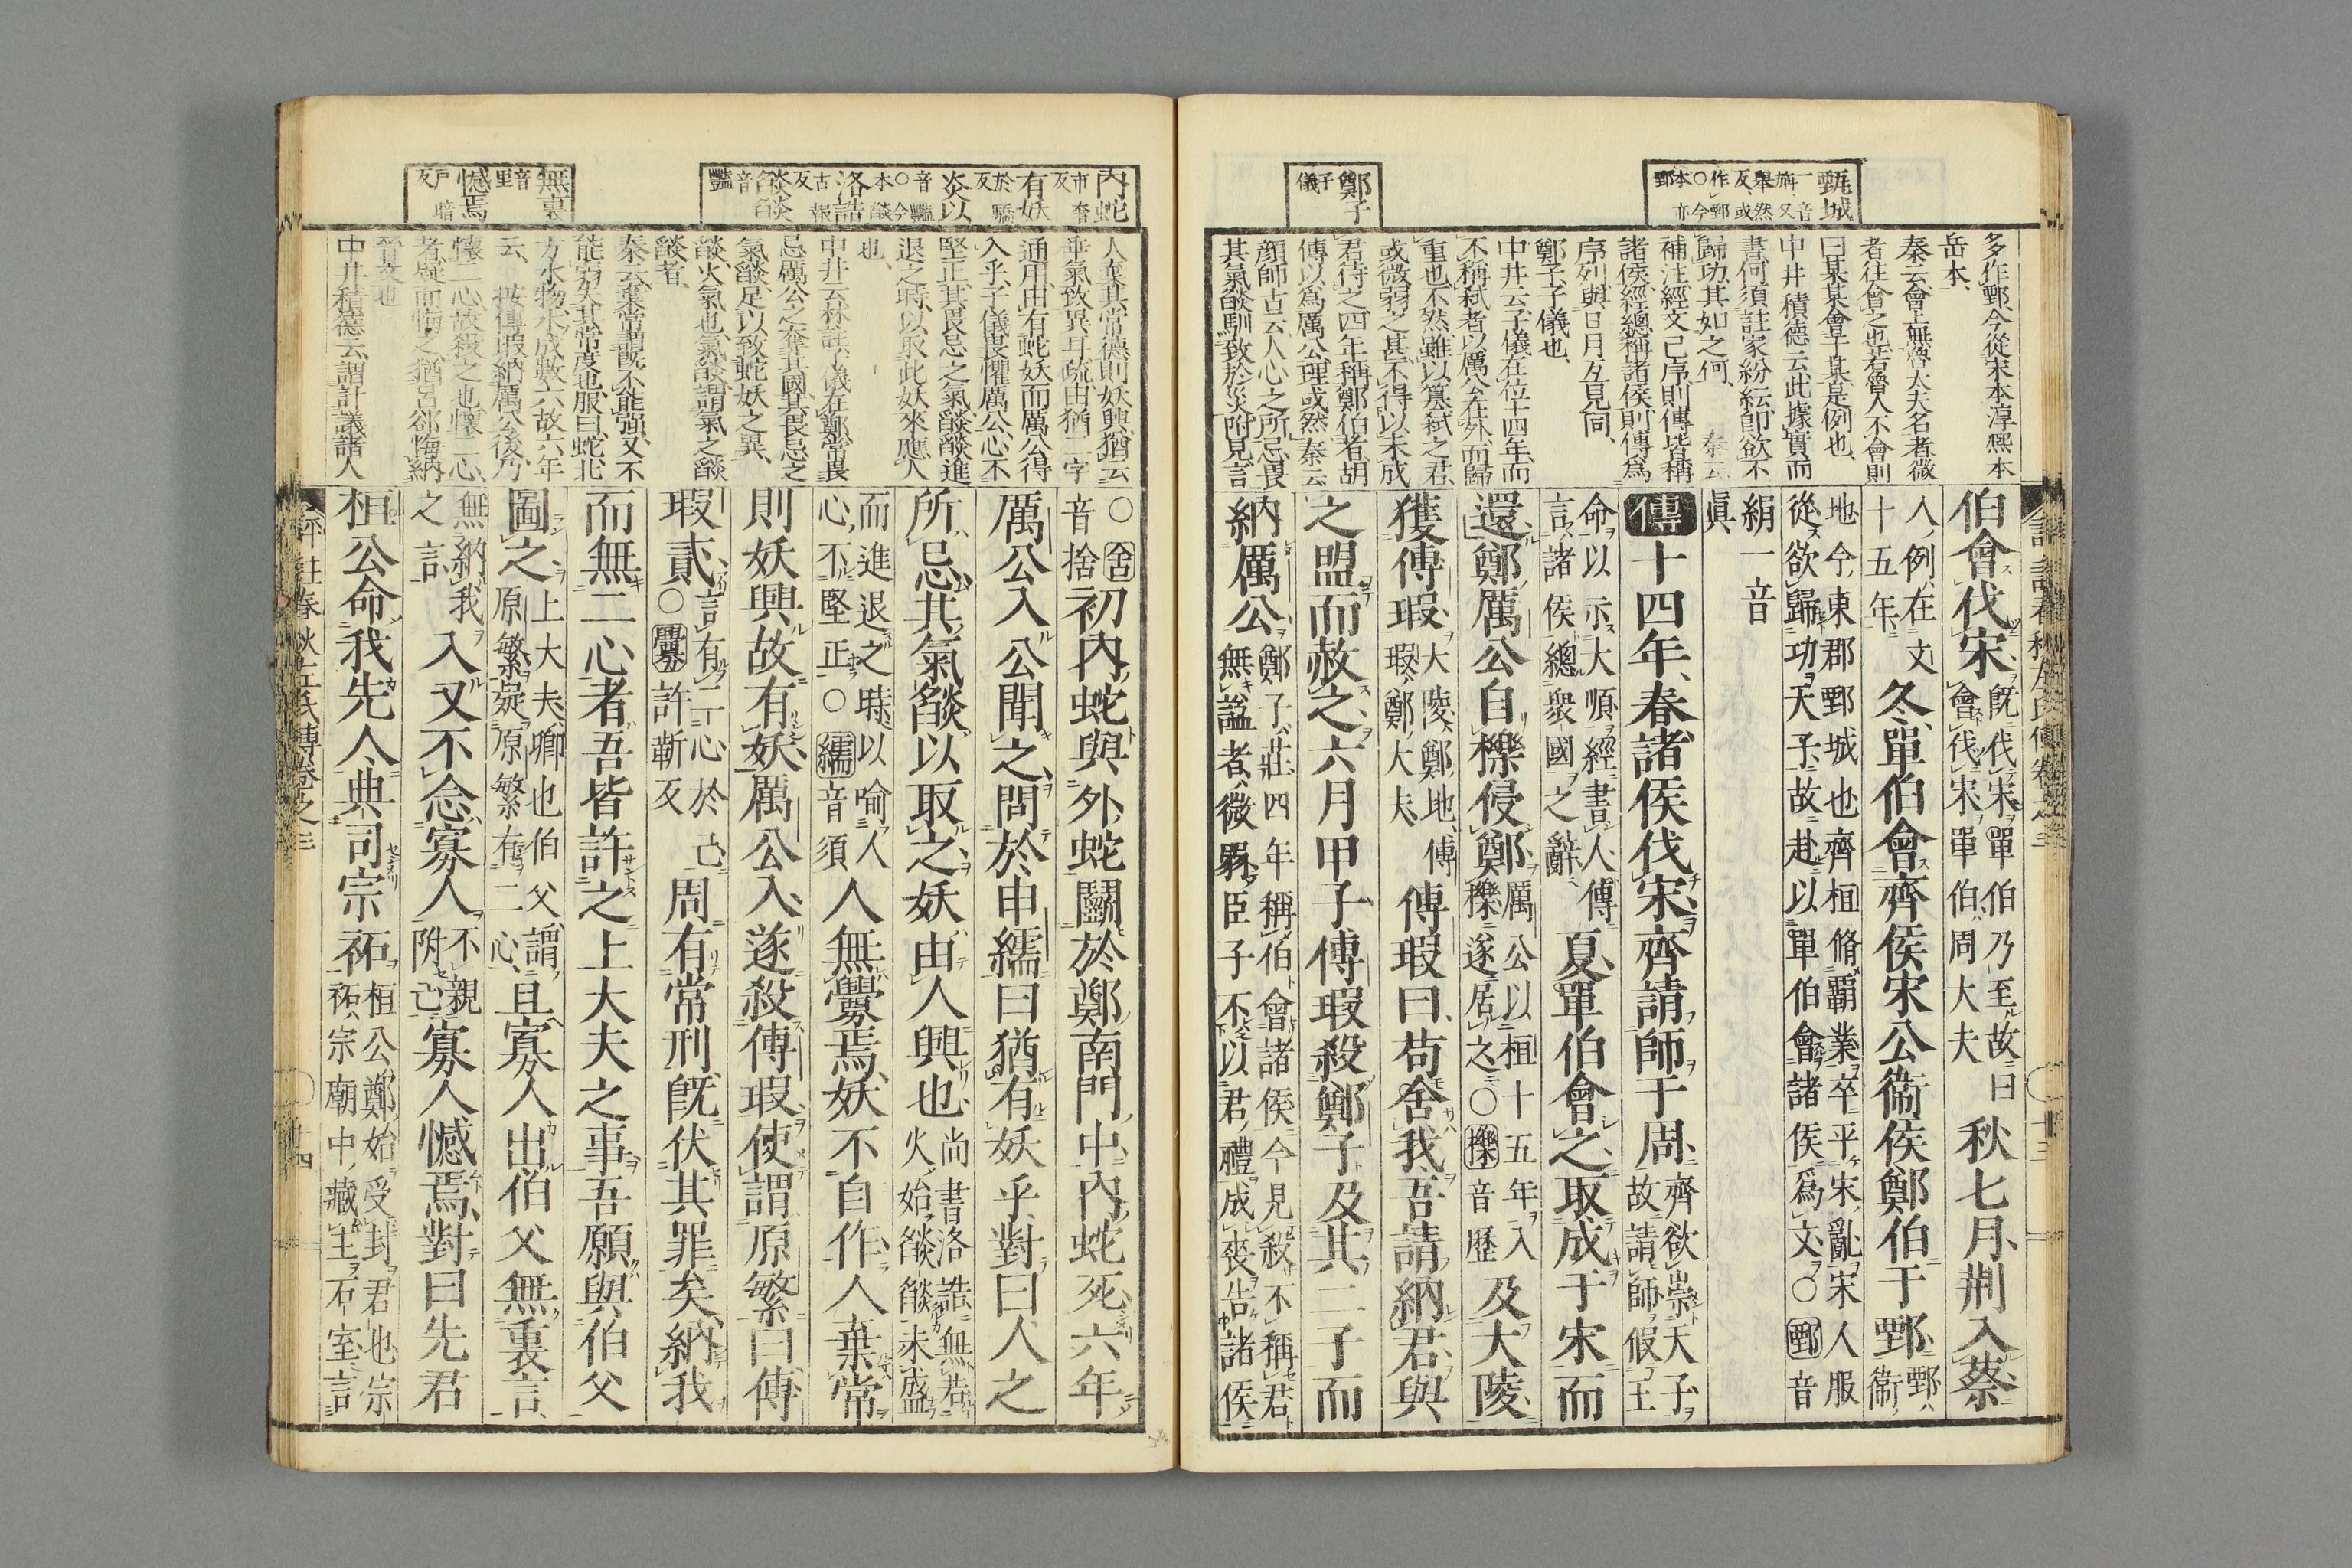 甄城
一音
旃又
舉然
反或
作鄄
○今
本亦
鄄
鄭子
鄭
子
儀
多作鄄今從宋本淳熙本
岳本
秦云會上無魯大夫名者微
者往會之也若魯人不會則
曰某某會于某是例也
中井積德云此據實而
書何須註家紛紜卽欲不
歸功其如之何 秦云
補注經文已序則傳皆稱
諸侯經總稱諸侯則傳爲
序列與日月互見同
鄭子子儀也
中井云子儀在位十四年而
不稱弑者以厲公在外而歸
重也不然雖以簒弑之君
或微弱之甚不得以未成
君待之四年稱鄭伯者胡
傳以爲厲公理或然秦云
顔師古云人心之所忌畏
其氣燄馴致於災附見言
伯會伐宋既伐宋單伯乃至故曰會伐宋單伯周大夫秋七月荆入蔡
人例在文十五年冬單伯會齊侯宋公衞侯鄭伯于鄄鄄衞
地今東郡鄄城也齊桓脩霸業卒平宋亂宋人服從欲歸功天子故赴以單伯會諸侯爲文○鄄音
絹一音眞
傳十四年春諸侯伐宋齊請師于周齊欲崇天子故請師假王
命以示大順經書人傳言諸侯總衆國之辭夏單伯會之取成于宋而
還鄭厲公自櫟侵鄭厲公以桓十五年入櫟遂居之○櫟音歷及大陵
獲傅瑕大陵鄭地傅瑕鄭大夫傅瑕曰苟舍我吾請納君與
之盟而赦之六月甲子傅瑕殺鄭子及其二子而
納厲公鄭子莊四年稱伯會諸侯今見殺不稱君無謚者微弱臣子不以君禮成喪告諸侯
內蛇
市奢
反
有妖
於驕
反
炎以
音豔
○今
本燄
洛誥
古報
反
燄燄
音
豔
無裏
音
里
憾焉
戶暗
反
人棄其常德則妖興猶云
乖氣致異耳疏由猶二字
通用由有蛇妖而厲公得
入乎子儀畏懼厲公心不
堅正其畏忌之氣燄燄進
退之時以取此妖來應人
也
中井云林註子儀在鄭常畏
忌厲公之奪其國其畏忌之
氣燄足以致蛇妖之異
燄火氣也氣燄謂氣之燄
燄者
秦云棄常謂既不能強又不
能弱失其常度也服曰蛇北
方水物水成數六故六年
云 按傅瑕納厲公後乃
懷二心故殺之也懷二心
者疑而悔之猶呂郤悔納
晉文也
中井積德云謂計議諸人
○舍音捨初內蛇與外蛇鬭於鄭南門中內蛇死六年
厲公入公聞之問於申繻曰猶有妖乎對曰人之
所忌其氣燄以取之妖由人興也尚書洛誥無若火始燄燄未盛
而進退之時以喻人心不堅正○繻音須人無釁焉妖不自作人棄常
則妖興故有妖厲公入遂殺傅瑕使謂原繁曰傅
瑕貳言有二心於己○釁許靳反周有常刑既伏其罪矣納我
而無二心者吾皆許之上大夫之事吾願與伯父
圖之上大夫卿也伯父謂原繁疑原繁有二心且寡人出伯父無裏言
無納我之言入又不念寡人不親附己寡人憾焉對曰先君
桓公命我先人典司宗祏桓公鄭始受封君也宗祏宗廟中藏主石室言
評註春秋左氏傳卷之三
十四